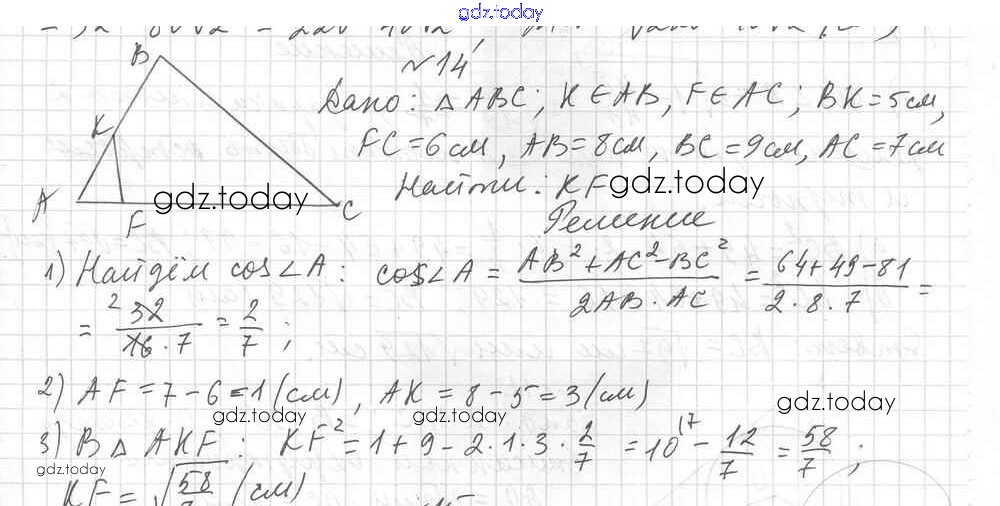 gdz.today
№14
B
Дано: △ABC; K∈AB, F∈AC; BK=5см,
K
FC=6см, AB=8см, BC=9см, AC=7см
A gdz.today C
F
Найти: KF gdz.today
Решение
1) Найдём cos∠A: cos∠A = (AB²+AC²-BC²)/(2AB·AC) = (64+49-81)/(2·8·7) =
= 2 32/(16·7) = 2/7;
2) AF=7-6=1(см), AK=8-5=3(см)
gdz.today gdz.today gdz.today
3) В △AKF: KF²=1+9-2·1·3·2/7 = 10^17 - 12/7 = 58/7;
gdz.today
KF = √58/7 (см)